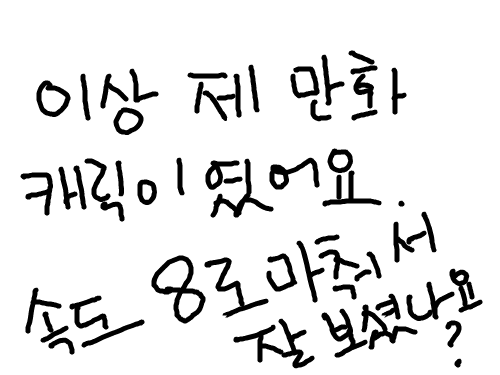 이상 제 만화
캐릭이 였어요.
속도 8로 마춰서
잘 보셨나요?